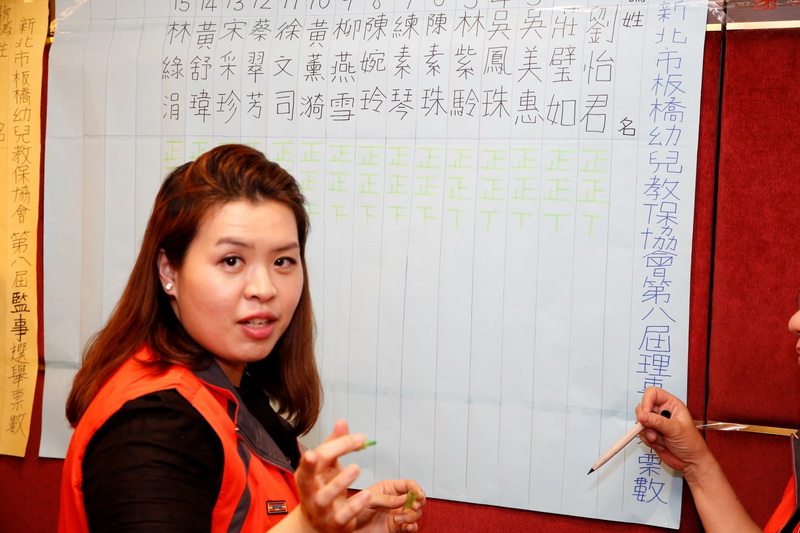 新北市板橋幼兒教保協會第八屆理事
票數
姓
名
劉怡君
壯璧如
吳美惠
吳鳳珠
林紫駖
陳素珠
練素琴
8
陳婉玲
9
柳燕雪
10
黃薰漪
11
徐文司
12
蔡翠芳
13
宋采珍
14
黃舒瑋
15
林綠涓
正 正 正 正 正 正 正 正 正 正 正 正 正
正 正 正 正 正 正 正 正 正 正 正 正
新北市板橋幼兒教保協會 第八屆監事選舉票數
姓
名